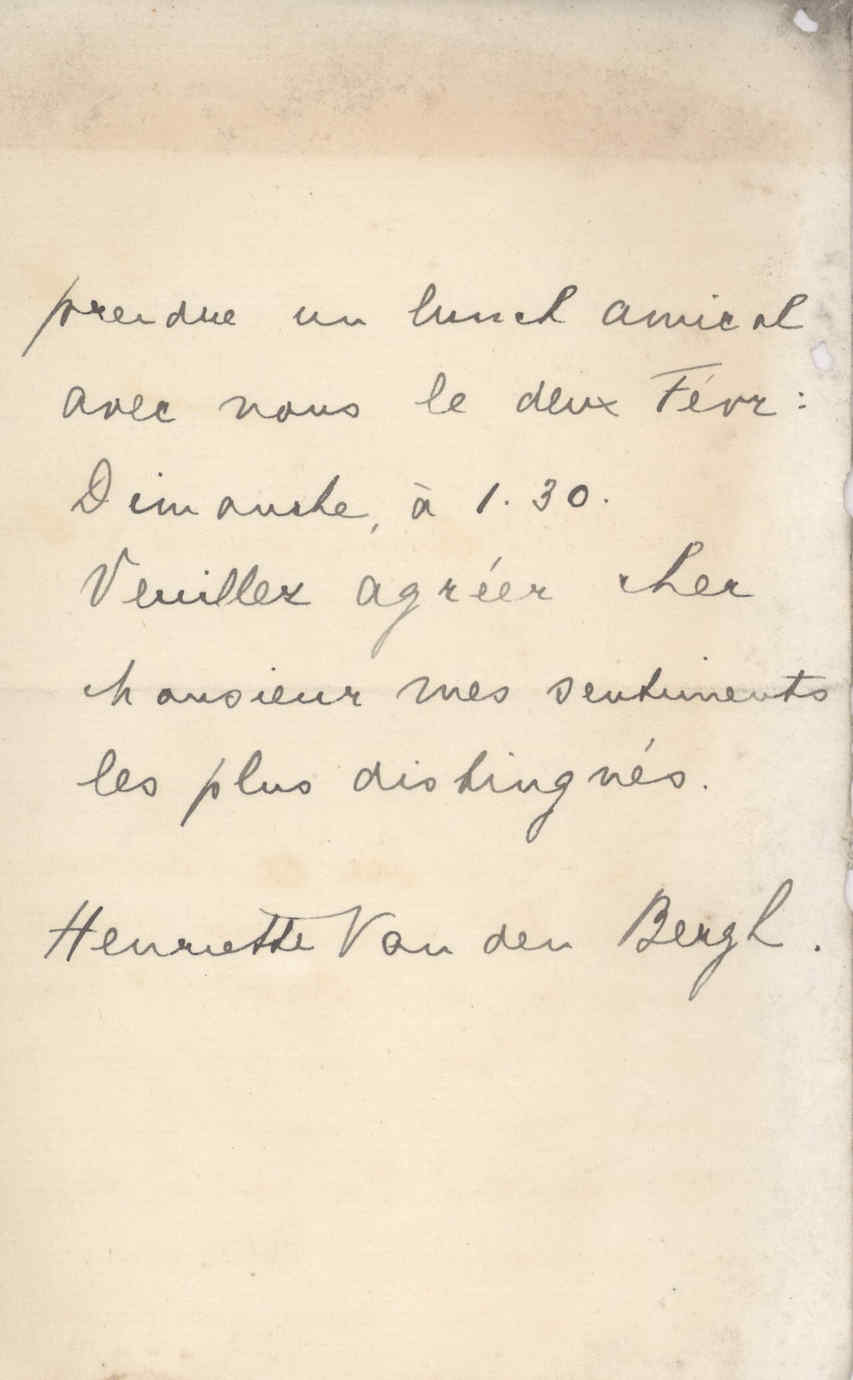 prendre un lunch amical
avec nous le deux Févr:
Dimanche, à 1.30.
Veuillez agréer cher
Monsieur mes sentiments
les plus distingués.
Henriette Van den Bergh.